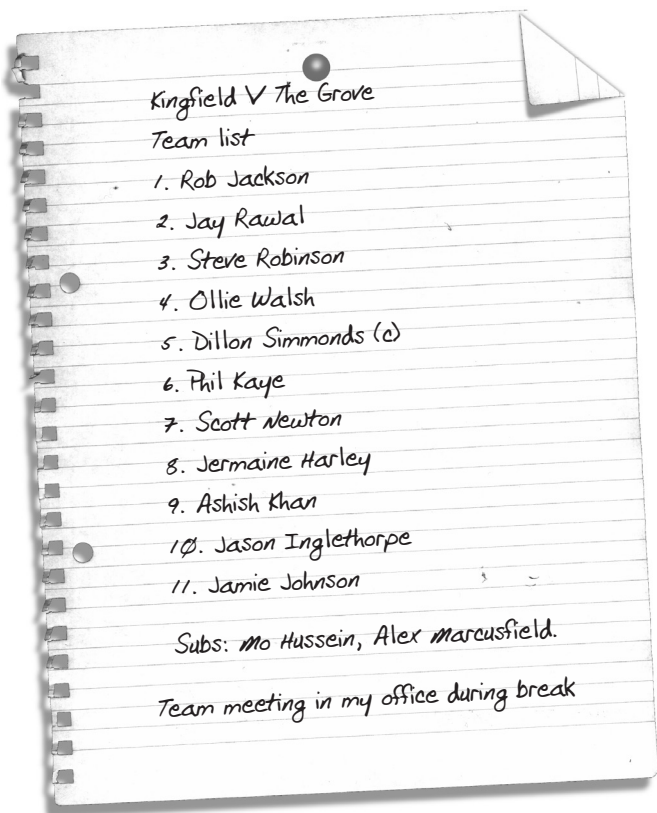 Kingfield V The Grove
Team list
1. Rob Jackson
2. Jay Rawal
3. Steve Robinson
4. Ollie Walsh
5. Dillon Simmonds (c)
6. Phil Kaye
7. Scott Newton
8. Jermaine Harley
9. Ashish Khan
10. Jason Inglethorpe
11. Jamie Johnson
Subs: Mo Hussein, Alex Marcusfield.
Team meeting in my office during break